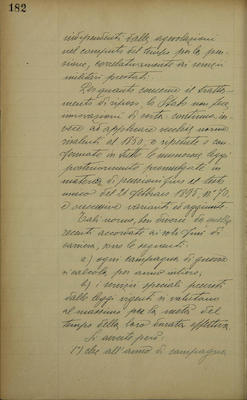 182
indipendenti dalle agevolazioni
nel computo del tempo per la pen-
sione, correlativamente ai servizi
militari prestati.
Per quanto concerne il tratta-
mento di riposo, lo Stato non fece
innovazioni di sorta: continuò in-
vece ad applicare vecchie norme
risalenti al 1850, e ripetute e con-
fermate in tutte le numerose leggi
posteriormente promulgate in
materia di pensioni fino al testo
unico del 21 febbraio 1895, n° 70,
e successive varianti ed aggiunte.
Tali norme, ben diverse da quelle
recenti accordate ai soli fini di
carriera, sono le seguenti:
a) ogni campagna di guerra
è calcolata per anno intero;
b) i servizi speciali previsti
dalle leggi vigenti si valutano
al massimo per la metà del
tempo della loro durata effettiva.
Si avverte però:
1°) che all'anno di campagna